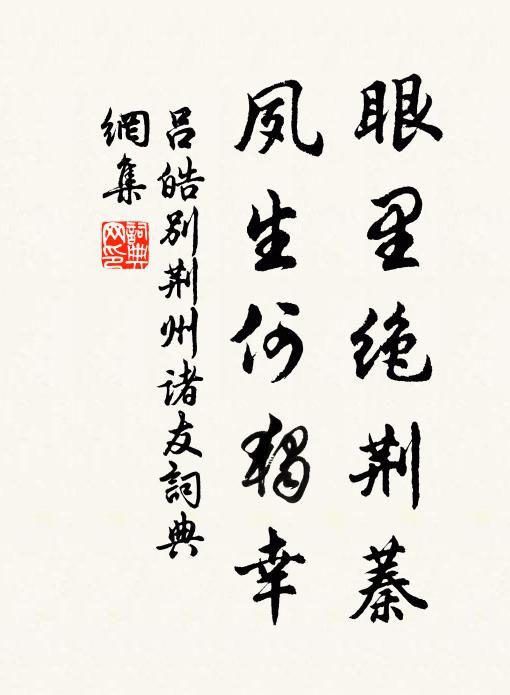 眼里绝荆蓁
夙生何独幸
吕皓别荆州诸友詞典
網集
詞典网印